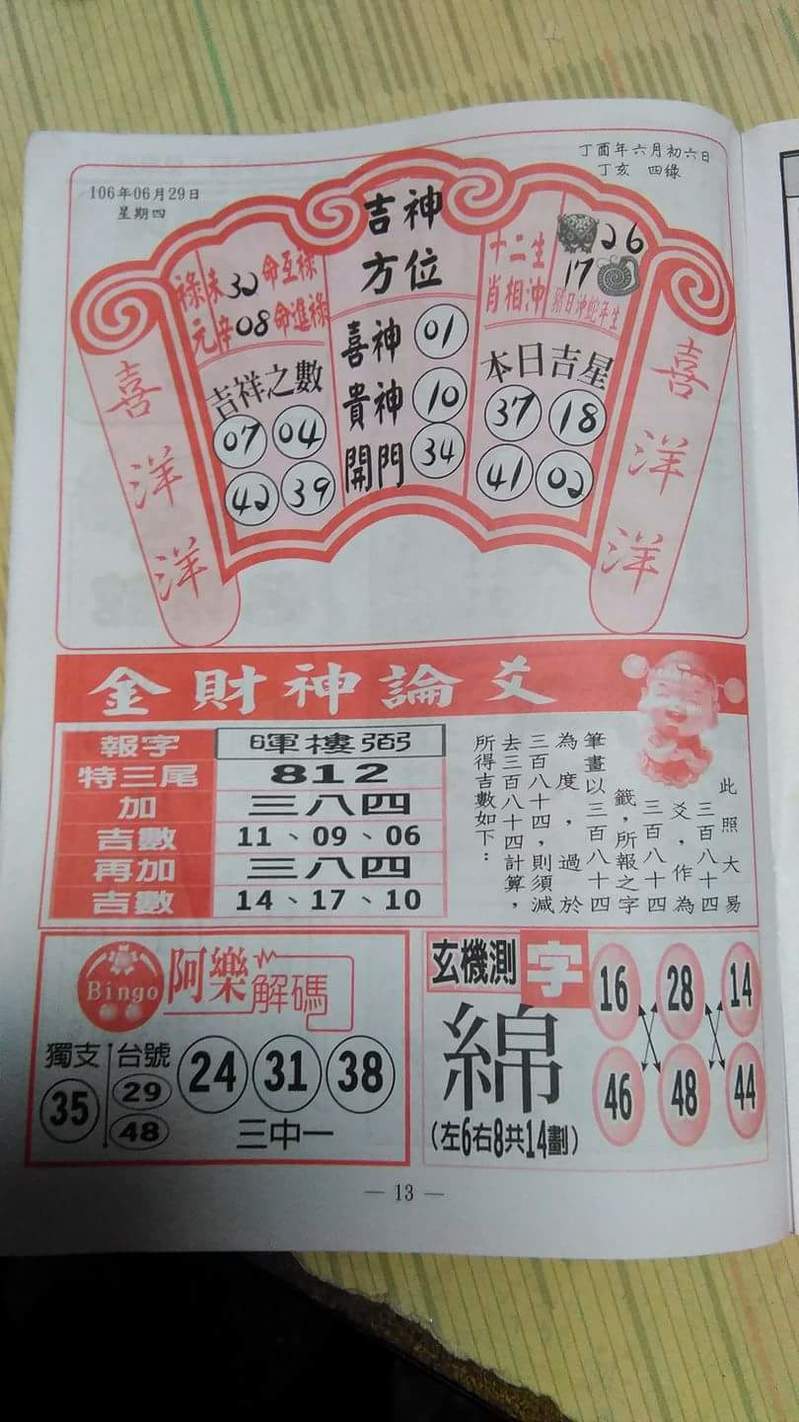 106年06月29日
星期四
丁酉年六月初六日
丁亥 四綠
吉神
方位
喜神 01
貴神 10
開門 34
祿未32命互祿
元辛08命進祿
吉祥之數
07 04
42 39
十二生
肖相沖
26
17
豬日沖蛇年生
本日吉星
37 18
41 02
喜洋洋
喜洋洋
金財神論爻
報字 暉樓弼
特三尾 812
加 三八四
吉數 11、09、06
再加 三八四
吉數 14、17、10
此照大易
三百八十四
爻,作為
三百八十四
籤,所報之字
筆畫以三百八十四
為度,過於
三百八十四,則須減
去三百八十四計算,
所得吉數如下:
Bingo
阿樂解碼
獨支 35
台號 29 48
24 31 38
三中一
玄機測字
綿
(左6右8共14劃)
16 28 14
46 48 44
— 13 —